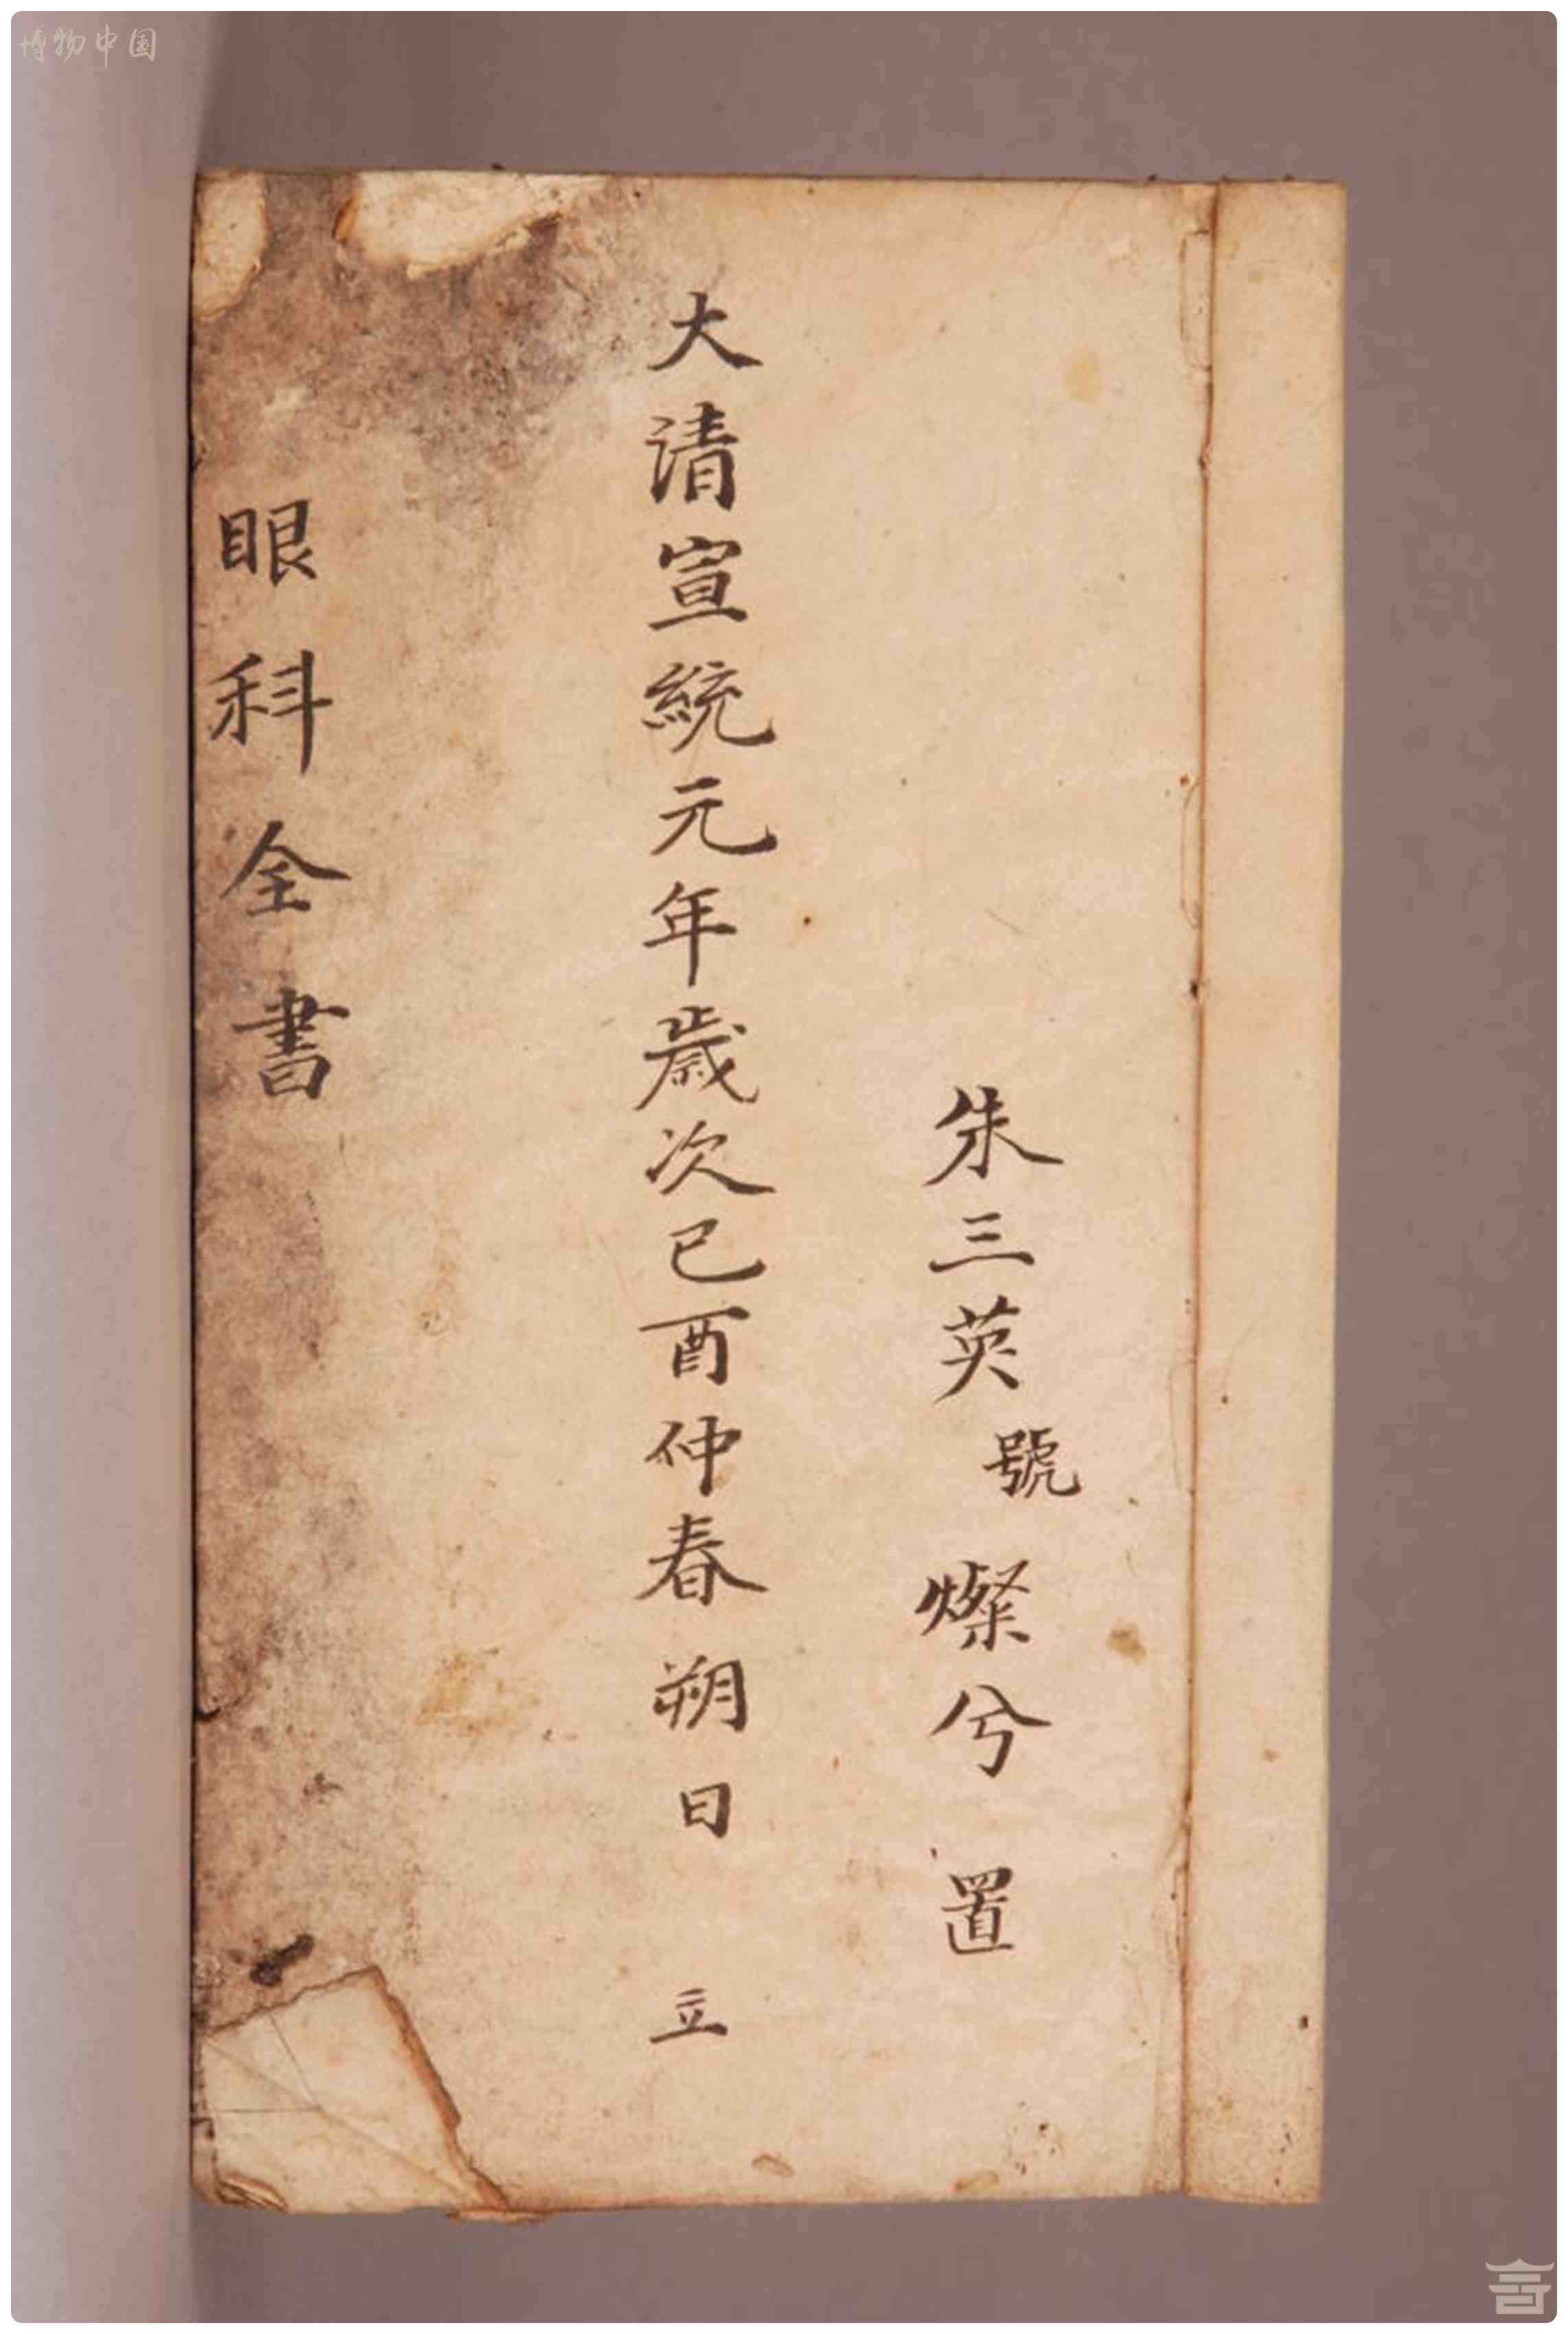 博物中国
朱三英號燦兮置
大清宣統元年歲次己酉仲春朔日立
眼科全書